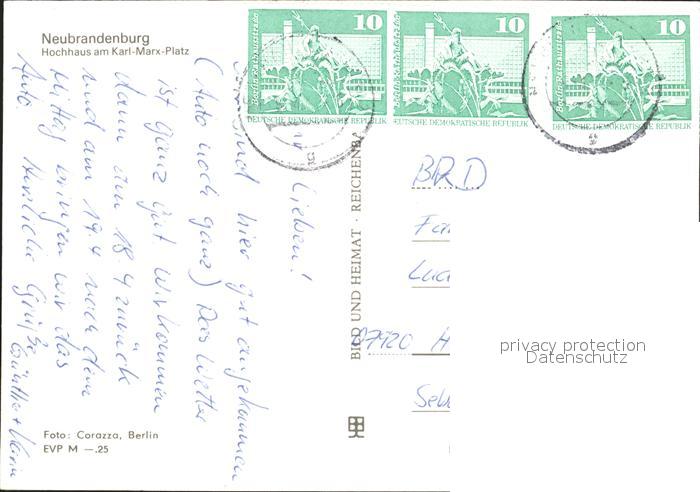 Neubrandenburg
Hochhaus am Karl-Marx-Platz
10
10
10
Berlin Rathausstraße
DEUTSCHE DEMOKRATISCHE REPUBLIK
DEUTSCHE DEMOKRATISCHE REPUBLIK
DEUTSCHE DEMOKRATISCHE REPUBLIK
Lieben!
sind hier gut angekommen
(Auto noch ganz) Das Wetter
ist ganz gut Wir kommen
dann am 18.4 zurück
und am 19.4 nach dem
Mittag bringen wir das
Auto Herzliche Grüße
Günther +
BILD UND HEIMAT · REICHENBA
BRD
Fa
Luc
07920 H
Seb
privacy protection
Datenschutz
Foto: Corazza, Berlin
EVP M —.25